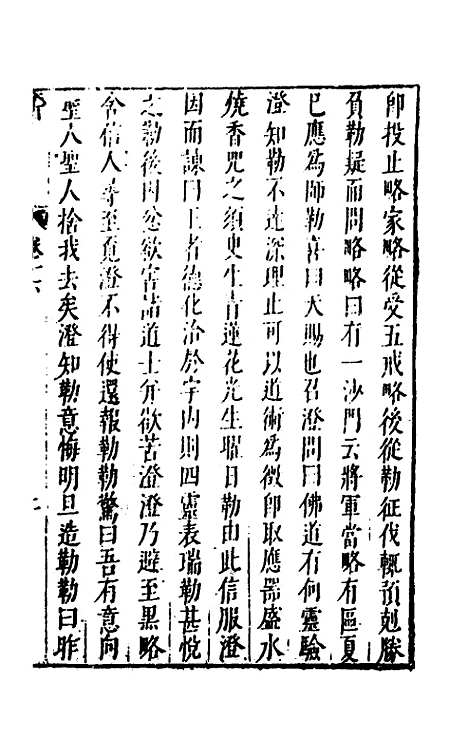 即投止略家略從受五戒略後從勒征伐輒預剋勝
負勒疑而問略略曰有一沙門云將軍當略有區夏
已應為師勒喜曰天賜也召澄問曰佛道有何靈驗
澄知勒不達深理止可以道術為徵即取應器盛水
燒香咒之須臾生青蓮花光生曜日勒由此信服澄
因而諫曰王者德化洽於宇內則四靈表瑞勒甚悅
之勒後因忿欲害諸道士并欲苦澄澄乃避至黑略
舍信人尋至覓澄不得使還報勒勒驚曰吾有意向
聖人聖人捨我去矣澄知勒意悔明旦造勒勒曰昨
卷十六
七